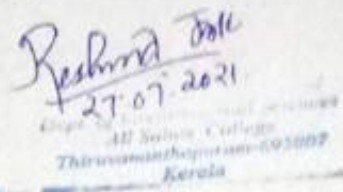 Reshma
27.07.2021
Dept. of
All Saints College
Thiruvananthapuram-695007
Kerala